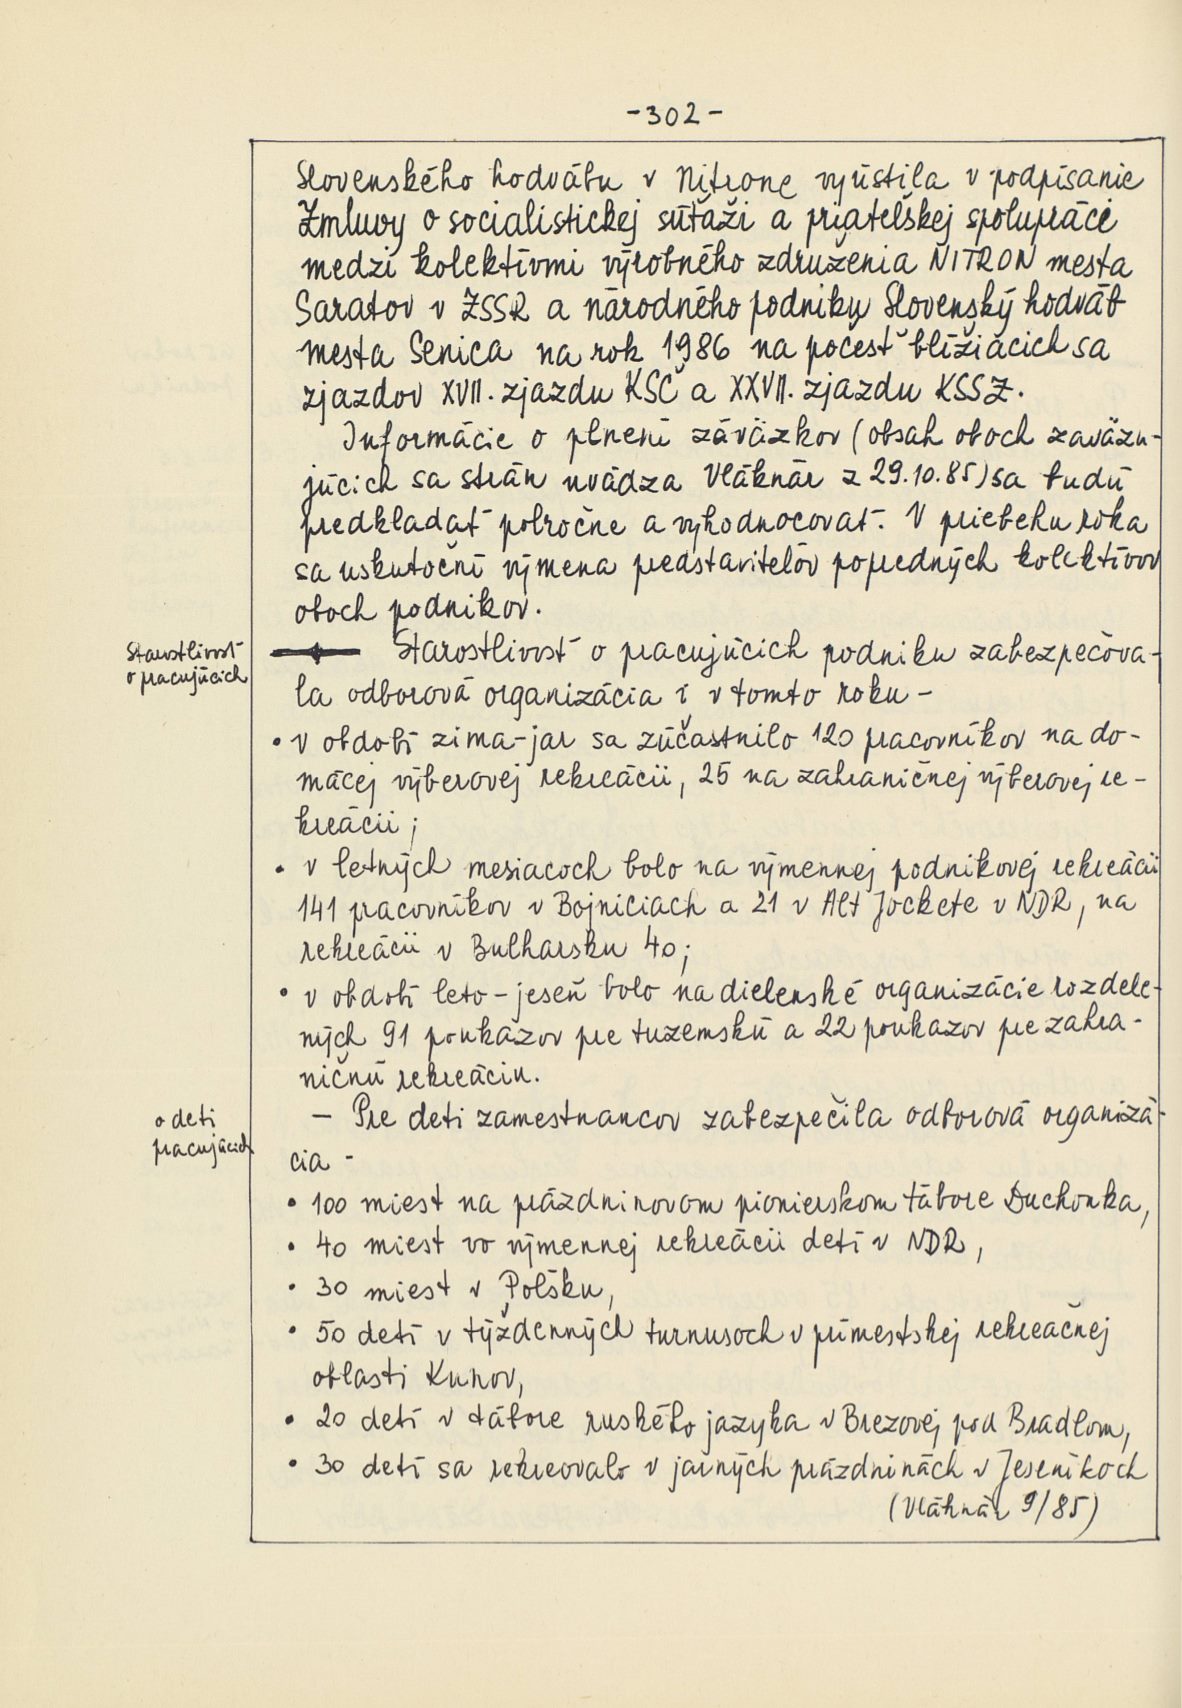 -302-
Slovenského hodvábu v Nitrone vyústila v podpísanie
Zmluvy o socialistickej súťaži a priateľskej spolupráci
medzi kolektívmi výrobného združenia NITRON mesta
Saratov v ZSSR a národného podniku Slovenský hodváb
mesta Senica na rok 1986 na počesť blížiacich sa
zjazdov XVII. zjazdu KSČ a XXVII. zjazdu KSSZ.
Informácie o plnení záväzkov (obsah oboch zaväzu-
júcich sa strán uvádza Vláknár z 29.10.85) sa budú
predkladať polročne a vyhodnocovať. V priebehu roka
sa uskutoční výmena predstaviteľov popredných kolektívov
oboch podnikov.
Starostlivosť
o pracujúcich
Starostlivosť o pracujúcich podniku zabezpečova-
la odborová organizácia i v tomto roku -
• v období zima-jar sa zúčastnilo 120 pracovníkov na do-
mácej výberovej rekreácii, 25 na zahraničnej výberovej re-
kreácii;
• v letných mesiacoch bolo na výmennej podnikovej rekreácii
141 pracovníkov v Bojniciach a 21 v Alt Jockete v NDR, na
rekreácii v Bulharsku 40;
• v období leto-jeseň bolo na dielenské organizácie rozdele-
ných 91 poukazov pre tuzemskú a 22 poukazov pre zahra-
ničnú rekreáciu.
o deti
pracujúcich
- Pre deti zamestnancov zabezpečila odborová organizá-
cia -
• 100 miest na prázdninovom pionierskom tábore Duchonka,
• 40 miest vo výmennej rekreácii detí v NDR,
• 30 miest v Poľsku,
• 50 detí v týždenných turnusoch v prímestskej rekreačnej
oblasti Kunov,
• 20 detí v tábore ruského jazyka v Brezovej pod Bradlom,
• 30 detí sa rekreovalo v jarných prázdninách v Jeseníkoch
(Vláknár 9/85)